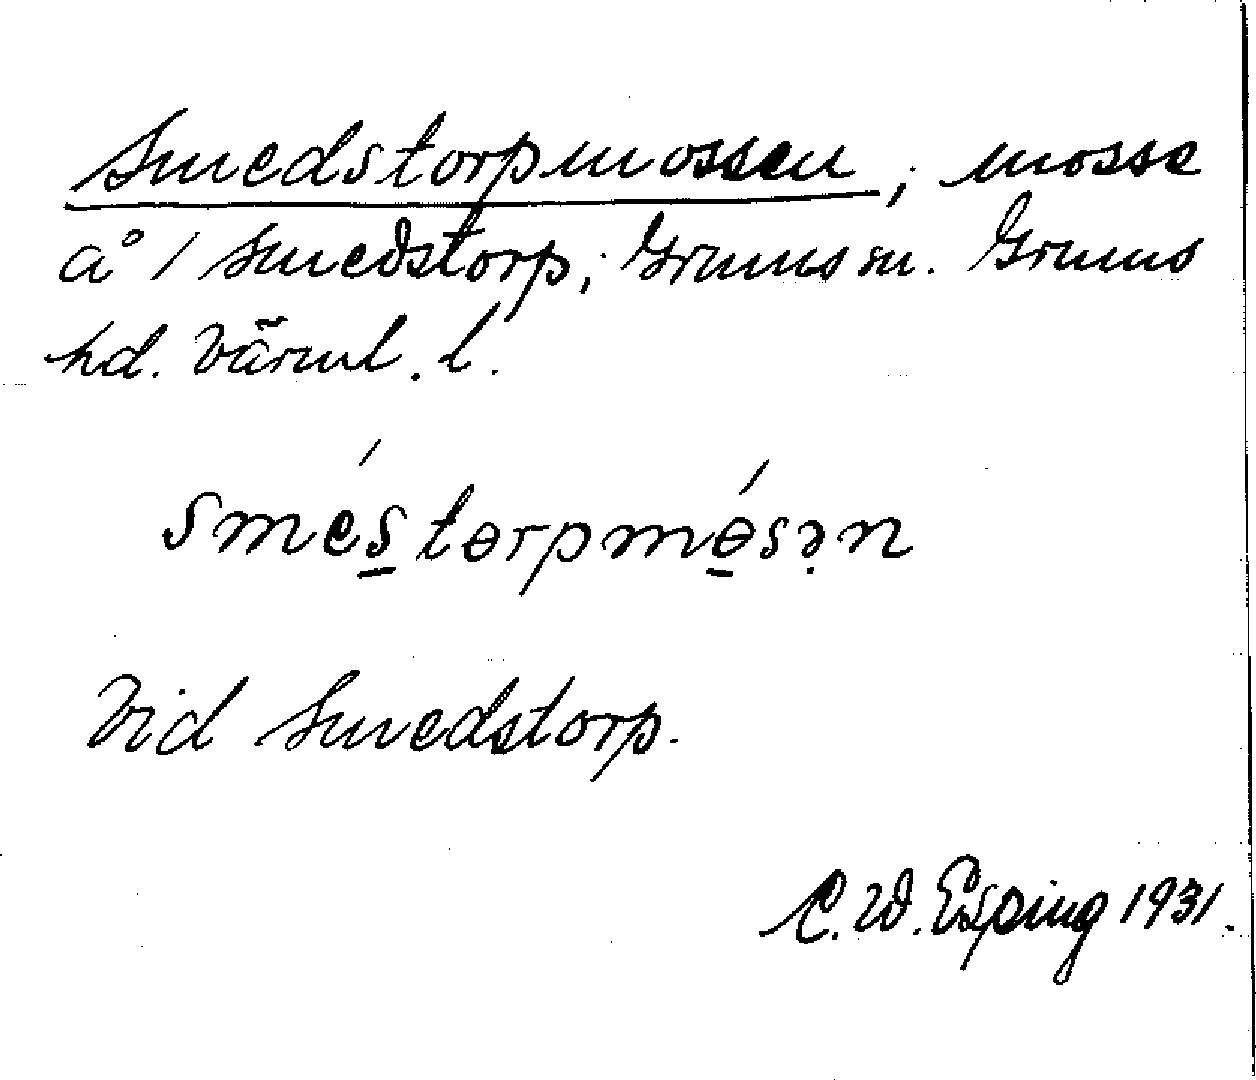 Smedstorpmossen; mosse
å 1 Smedstorp; Grums sn. Grums
hd. Värml. l.
sméstɵrpmɵ́sən
Vid Smedstorp.
C. W. Esping 1931.